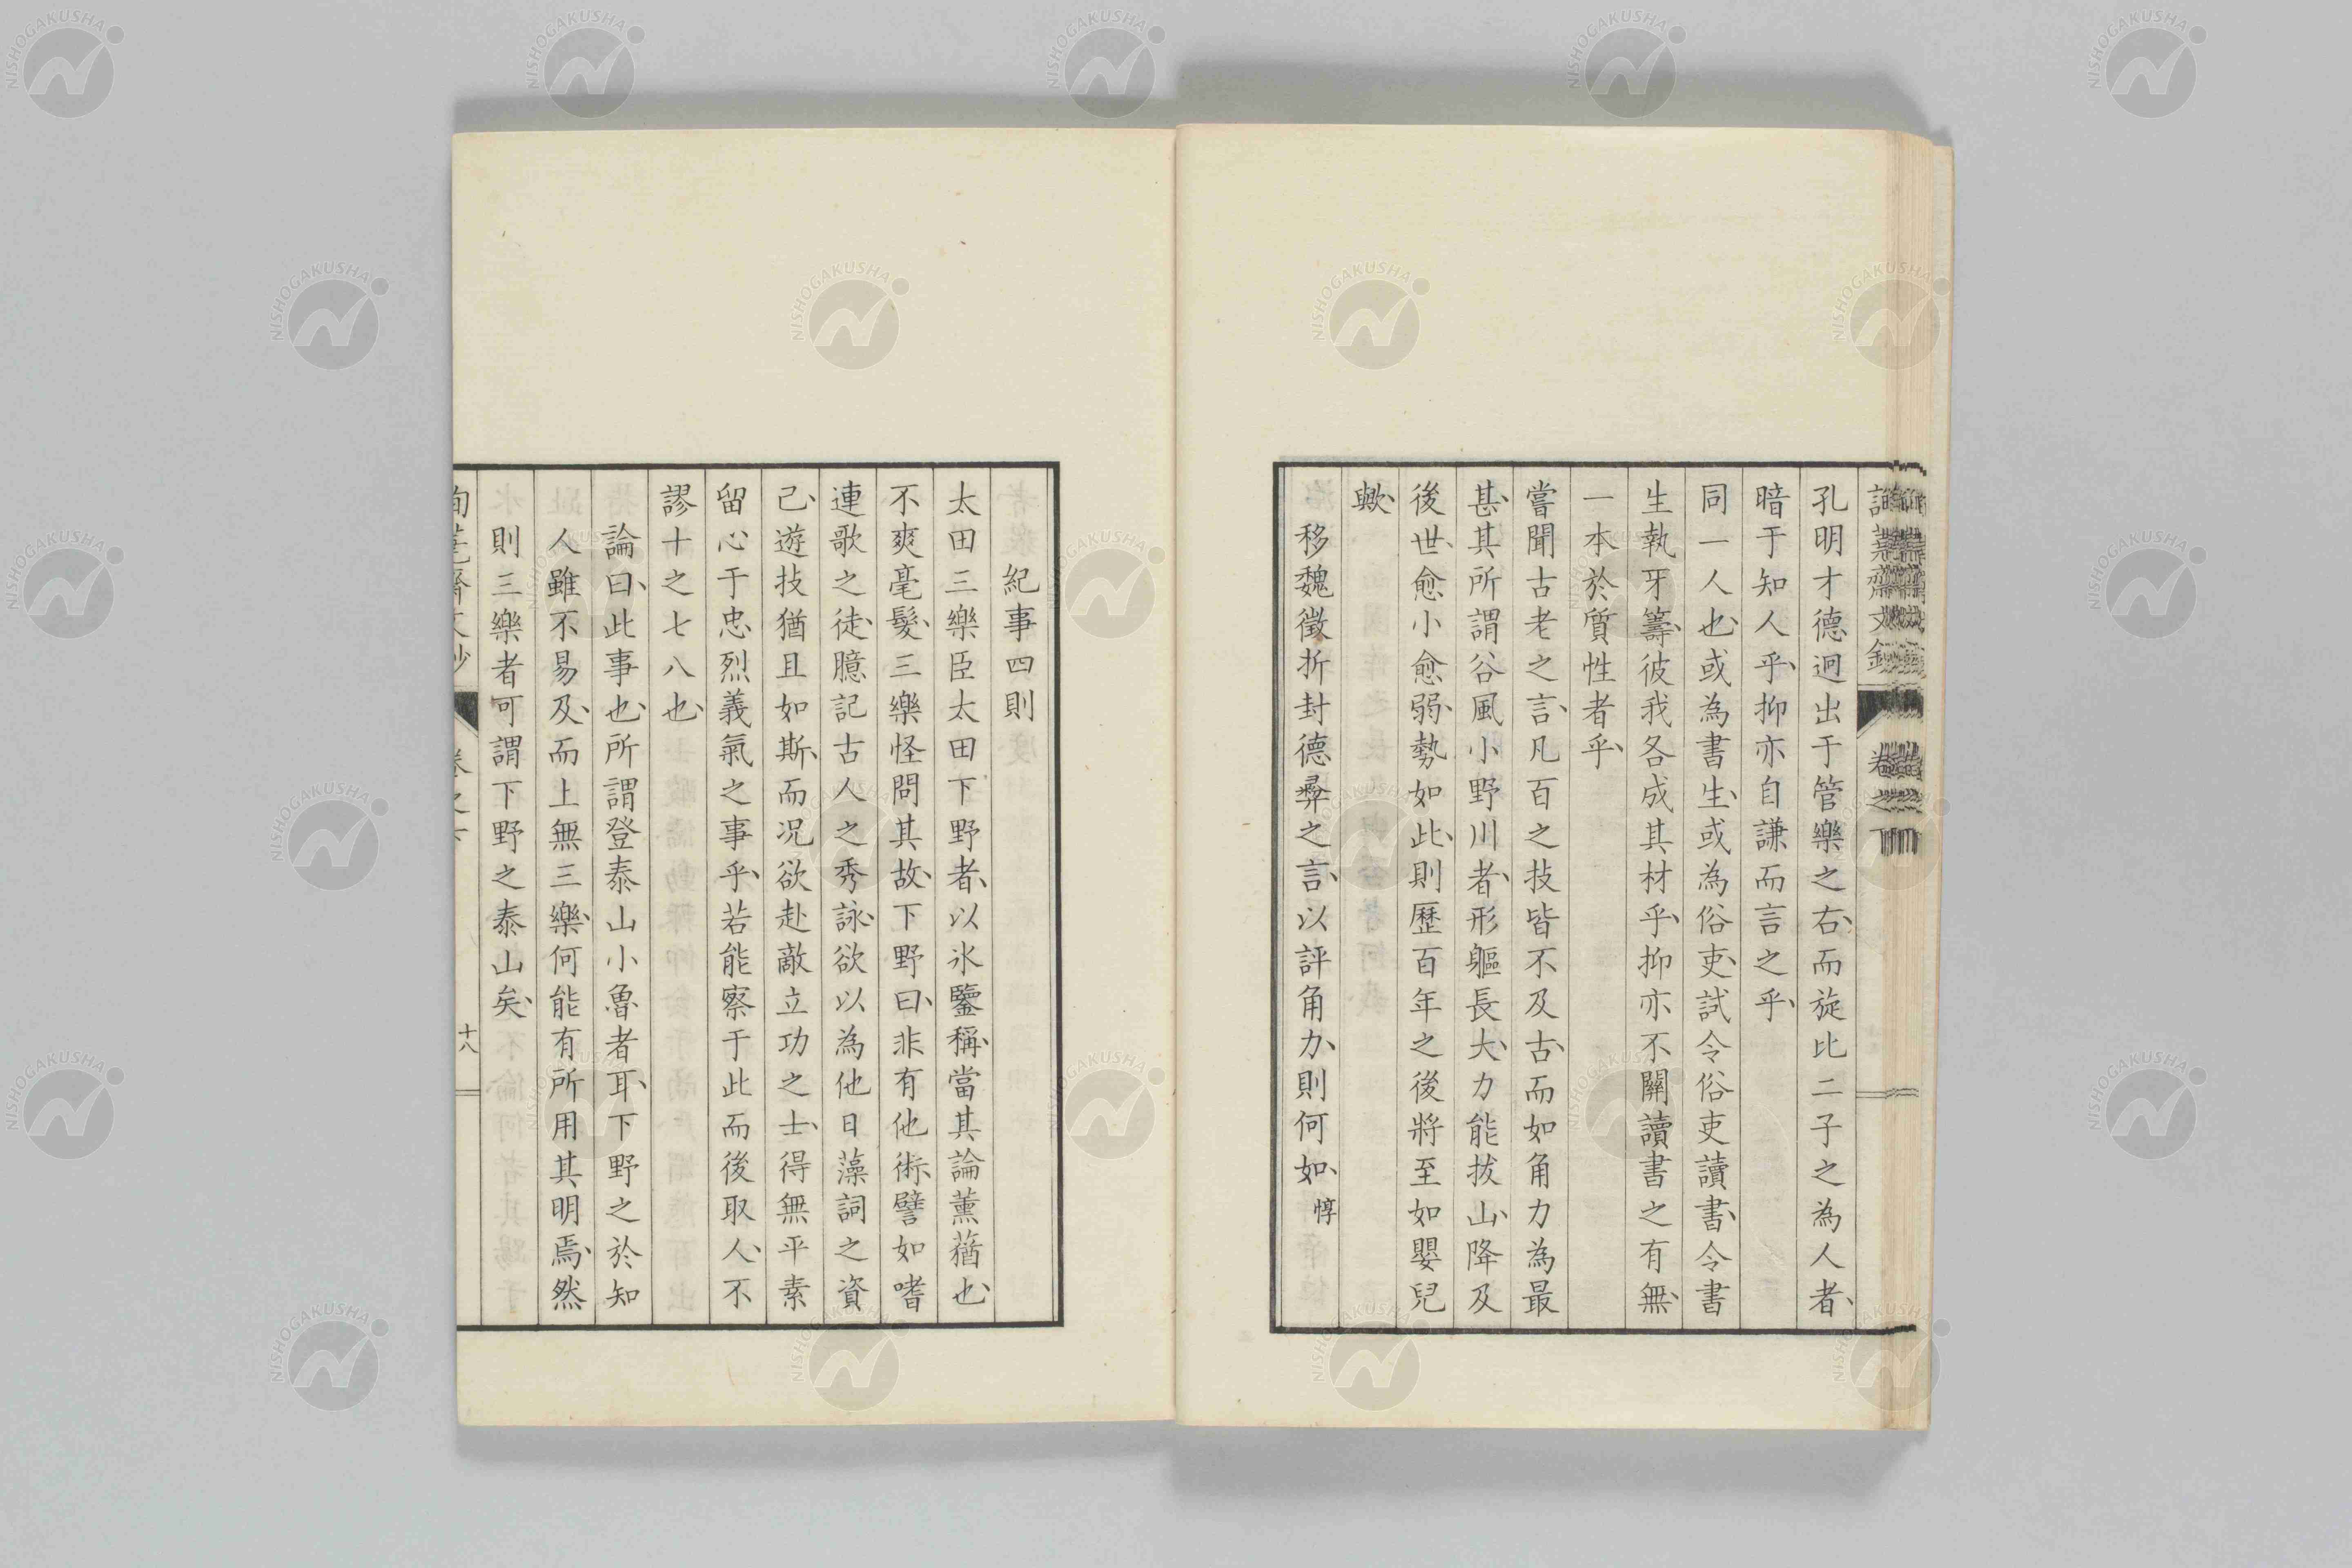 孔明才德迥出于管樂之右、而旋比二子之為人者、
暗于知人乎、抑亦自謙而言之乎、
同一人也、或為書生、或為俗吏、試令俗吏讀書、令書
生執牙籌、彼我各成其材乎、抑亦不關讀書之有無、
一本於質性者乎、
嘗聞古老之言、凡百之技皆不及古、而如角力為最
甚、其所謂谷風小野川者、形軀長大、力能拔山、降及
後世、愈小愈弱、勢如此、則歷百年之後將至如嬰兒
歟、
移魏徵折封德彝之言、以評角力、則何如、惇
紀事四則
太田三樂臣太田下野者、以氷鑒稱、當其論薰蕕也、
不爽毫髮、三樂怪問其故、下野曰、非有他術、譬如嗜
連歌之徒、臆記古人之秀詠、欲以為他日藻詞之資
己、遊技猶且如斯、而況欲赴敵立功之士、得無平素
留心于忠烈義氣之事乎、若能察于此而後取人、不
謬十之七八也、
論曰、此事也、所謂登泰山小魯者耳、下野之於知
人雖不易及、而上無三樂、何能有所用其明焉、然
則三樂者可謂下野之泰山矣、
十八
NISHOGAKUSHA